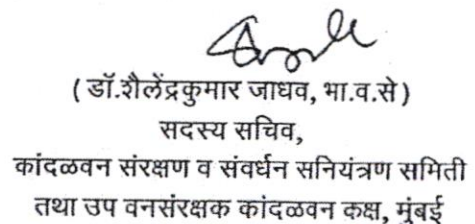 ( डॉ.शैलेंद्रकुमार जाधव, भा.व.से )
सदस्य सचिव,
कांदळवन संरक्षण व संवर्धन सनियंत्रण समिती
तथा उप वनसंरक्षक कांदळवन कक्ष, मुंबई